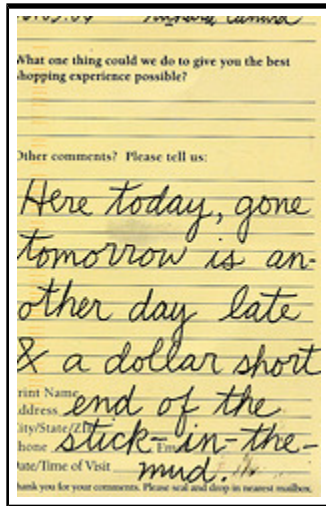 What one thing could we do to give you the best
shopping experience possible?
Other comments? Please tell us:
Here today, gone
tomorrow is an-
other day late
& a dollar short
Print Name
Address end of the
City/State/Zip
Phone stick-in-the-
Date/Time of Visit mud.
Thank you for your comments. Please seal and drop in nearest mailbox.